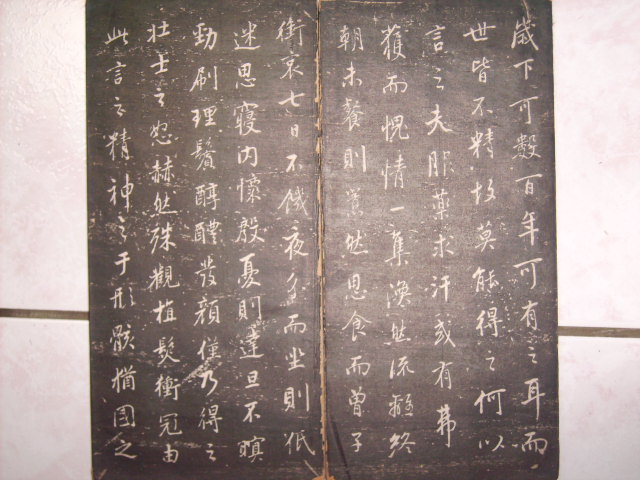 歲下可數百年可有之耳而
世皆不精故莫能得之何以
言之夫服藥求汗或有弗
獲而愧情一集渙然流離終
朝未餐則囂然思食而曾子
銜哀七日不饑夜分而坐則低
迷思寢內懷殷憂則達旦不瞑
勁刷理鬢醇醴發顏僅乃得之
壯士之怒赫然殊觀植髮衝冠由
此言之精神之于形骸猶國之